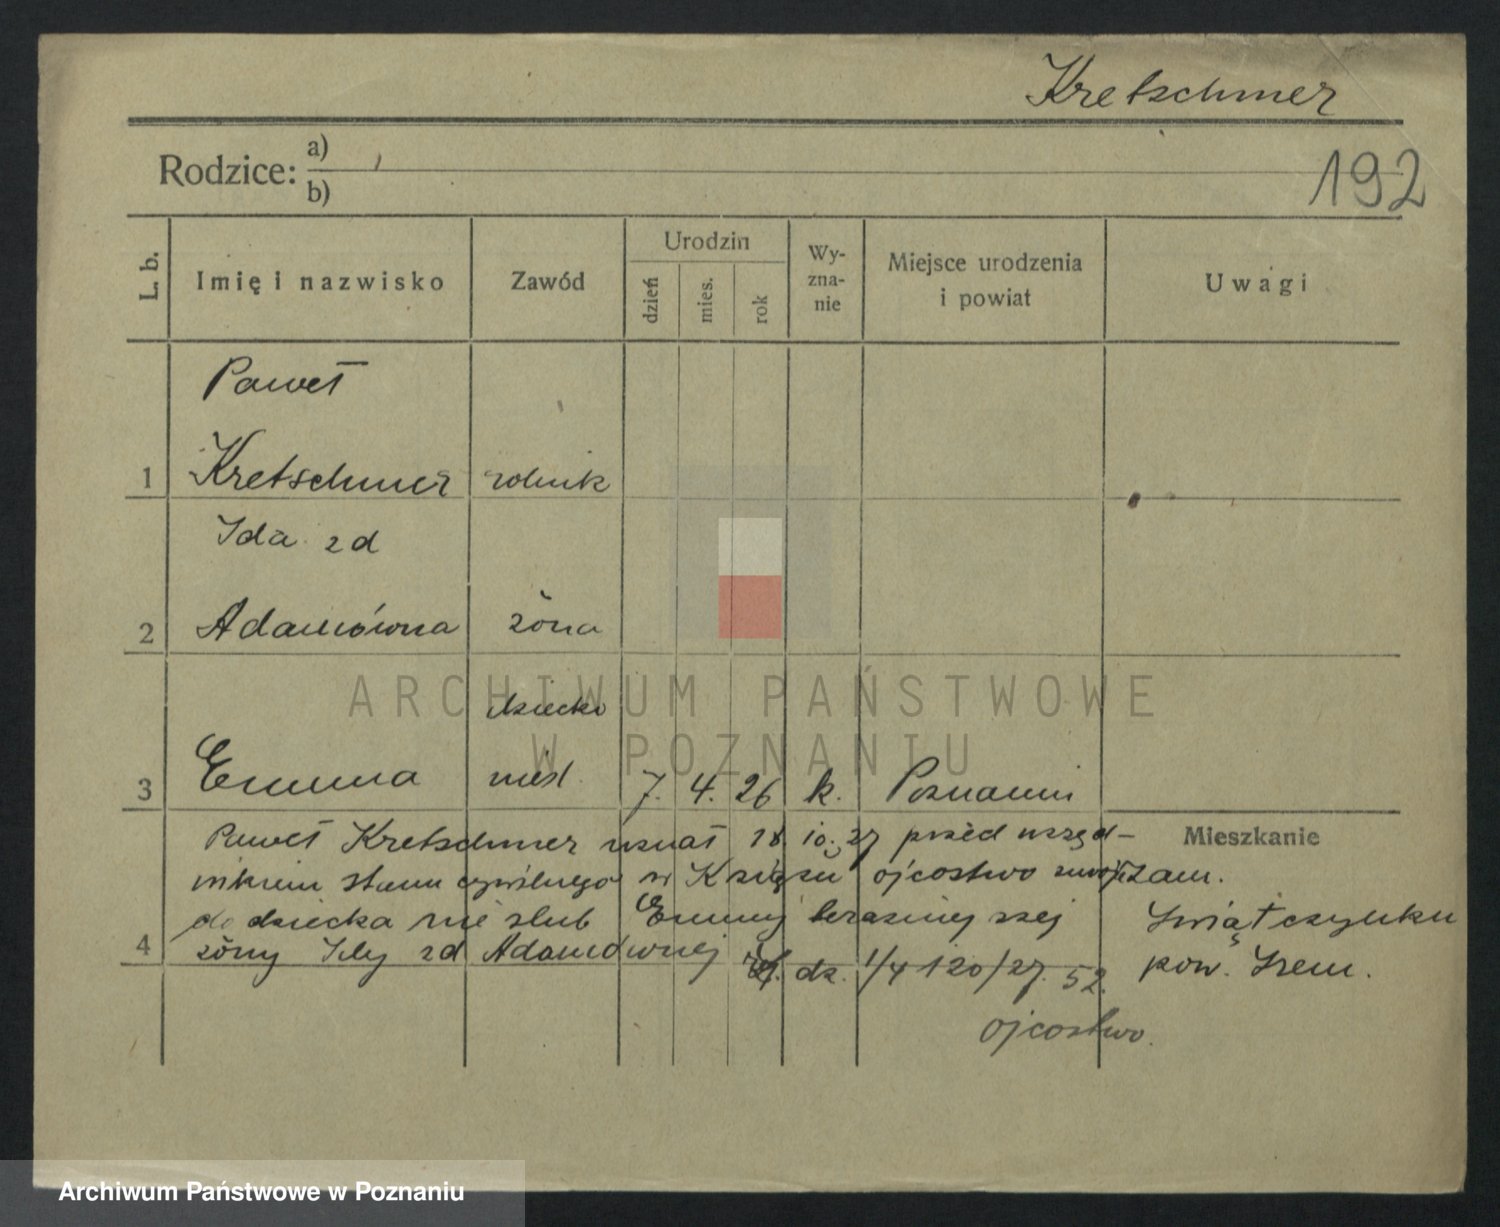 Kretschmer
Rodzice: a)
b)
192
L. b.
Imię i nazwisko
Zawód
Urodzin
dzień
mies.
rok
Wy-
zna-
nie
Miejsce urodzenia
i powiat
Uwagi
Paweł
1 Kretschmer rolnik
Ida z d
2 Adamówna żona
dziecko
3 Emma nieśl. 7. 4. 26 k. Poznaniu
Paweł Kretschmer uznał 18. 10. 27 przed urzęd-
nikiem stanu cywilnego w Książu ojcostwo
do dziecka nie ślub Emmy
4 żony Idy z d Adamównej dz. 1/4 120/27. 52.
ojcostwo.
Mieszkanie
zam.
Świątczynku
pow. Śrem.
ARCHIWUM PAŃSTWOWE
W POZNANIU
Archiwum Państwowe w Poznaniu